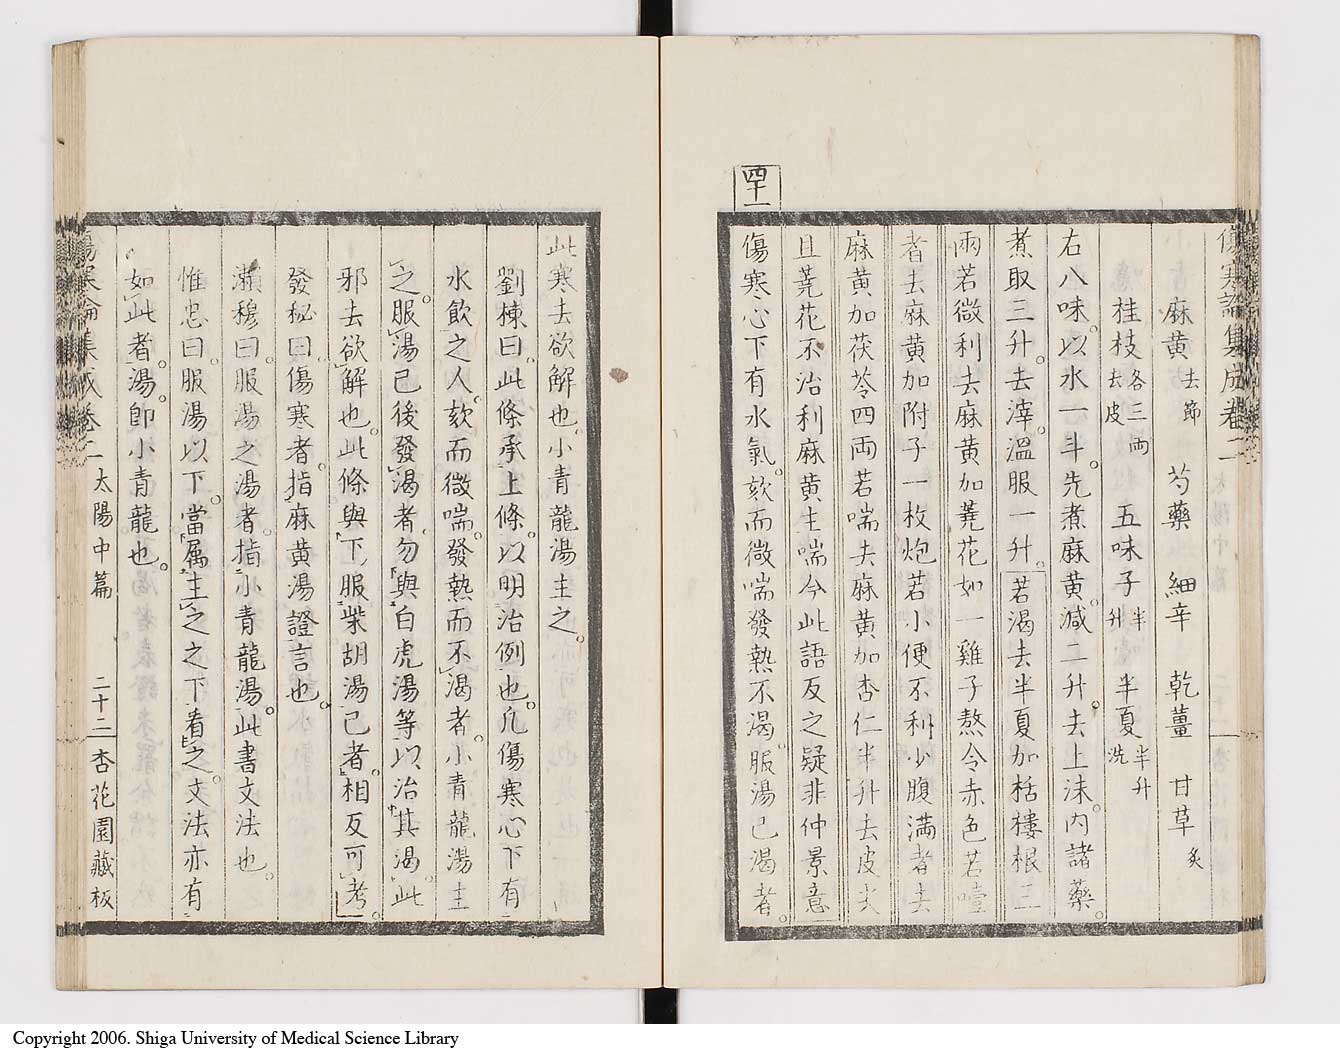 傷寒論集成卷二
麻黄去節 芍藥 細辛 乾薑 甘草炙
桂枝各三両去皮 五味子半升 半夏半升洗
右八味。以水一斗。先煮麻黄。減二升。去上沫。内諸藥。
煮取三升。去滓。溫服一升。若渴去半夏加栝樓根三
兩若微利去麻黄加蕘花如一雞子熬令赤色若噎
者去麻黄加附子一枚炮若小便不利少腹満者去
麻黄加茯苓四両若喘去麻黄加杏仁半升去皮尖
且蕘花不治利麻黄主喘今此語反之疑非仲景意
四十一
傷寒心下有水氣。欬而微喘發熱不渴。服湯已渴者。
此寒去欲解也。小青龍湯主之。
劉棟曰。此條承上條。以明治例也。凡傷寒心下有
水飲之人。欬而微喘。發熱而不渴者。小青龍湯主
之。服湯已後發渴者。勿與白虎湯等以治其渴。此
邪去欲解也。此條與下服柴胡湯已者。相反可考。
發秘曰。傷寒者。指麻黄湯證言也。
瀬穆曰。服湯之湯者。指小青龍湯。此書文法也。
惟忠曰。服湯以下。當属主之之下看之。文法亦有
如此者。湯卽小青龍也。
傷寒論集成卷二 太陽中篇 二十二 杏花園藏板
Copyright 2006. Shiga University of Medical Science Library